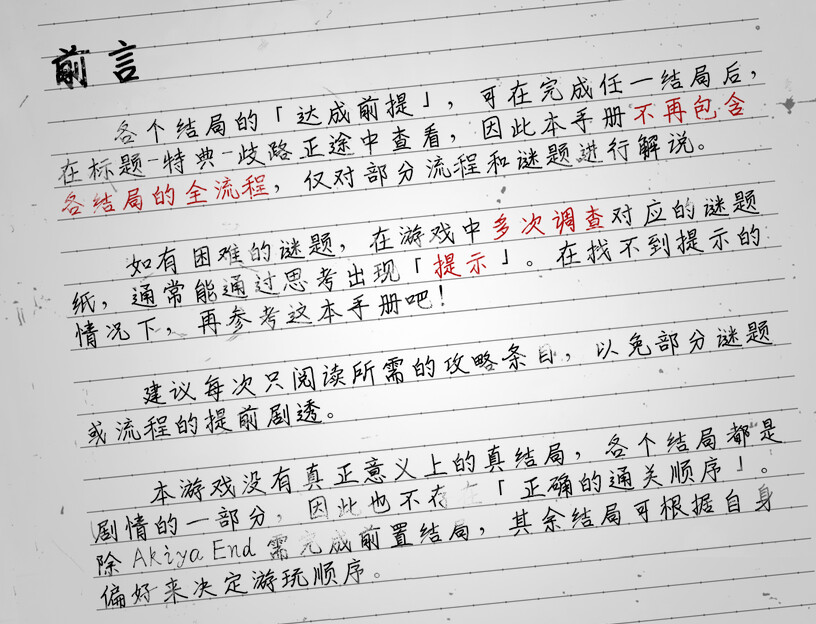 前言
各个结局的「达成前提」，可在完成任一结局后，
在标题-特典-歧路正途中查看，因此本手册不再包含
各结局的全流程，仅对部分流程和谜题进行解说。
如有困难的谜题，在游戏中多次调查对应的谜题
纸，通常能通过思考出现「提示」。在找不到提示的
情况下，再参考这本手册吧！
建议每次只阅读所需的攻略条目，以免部分谜题
或流程的提前剧透。
本游戏没有真正意义上的真结局，各个结局都是
剧情的一部分，因此也不存在「正确的通关顺序」。
除Akiya End需完成前置结局，其余结局可根据自身
偏好来决定游玩顺序。